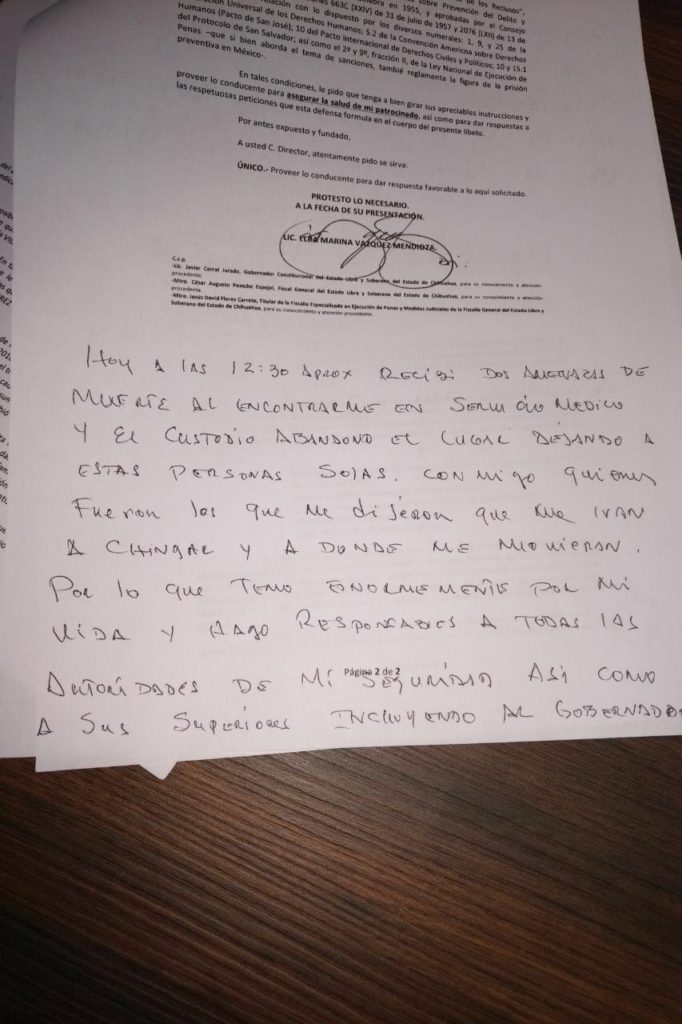 de los Reclusos",
sobre Prevención del Delito y
en 1955, y aprobadas por el Consejo
663C (XXIV) de 31 de julio de 1957 y 2076 (LXII) de 13 de
relación con lo dispuesto por los diversos numerales: 1, 9, y 25 de la
Universal de los Derechos Humanos; 5.2 de la Convención Americna sobre Derechos
Humanos (Pacto de San José); 10 del Pacto Internacional de Derechos Civiles y Políticos; 10 y 15.1
del Protocolo de San Salvador; así como el 2º y 9º, fracción II, de la Ley Nacional de Ejecución de
Penas –que si bien aborda el tema de sanciones, també reglamenta la figura de la prisión
preventiva en México-.
En tales condiciones, le pido que tenga a bien girar sus apreciables instrucciones y
proveer lo conducente para asegurar la salud de mi patrocinado, así como para dar respuestas a
las respetuosas peticiones que esta defensa formula en el cuerpo del presente libelo.
Por antes expuesto y fundado,
A usted C. Director, atentamente pido se sirva:
ÚNICO.- Proveer lo conducente para dar respuesta favorable a lo aquí solicitado.
PROTESTO LO NECESARIO.
A LA FECHA DE SU PRESENTACIÓN.
LIC. ELBA MARINA VAZQUEZ MENDIOZA.
C.c.p.
-Lic. Javier Corral Jurado, Gobernador Constitucional del Estado Libre y Soberano del Estado de Chihuahua, para su conocimiento y atención
procedente.
-Mtro. César Augusto Peniche Espejel, Fiscal General del Estado Libre y Soberano del Estado de Chihuahua, para su conocimiento y atención
procedente
-Mtro. Jesús David Flores Carrete, Titular de la Fiscalía Especializada en Ejecución de Penas y Medidas Judiciales de la Fiscalía General del Estado Libre y
Soberano del Estado de Chihuahua, para su conocimiento y atención procedente.
Hoy A las 12:30 Aprox Recibi Dos Amenazas DE
MUERTE AL ENCONTRARME EN SERVICIO MEDICO
Y EL CUSTODIO ABANDONO EL LUGAR DEJANDO A
ESTAS PERSONAS SOLAS. CONMIGO quienes
Fueron los que me dijeron que me IVAN
A CHINGAR Y A DONDE ME MOVIERAN.
Por lo que TEMO ENORMEMENTE POR MI
VIDA Y HAGO RESPONSABLES A TODAS LAS
AUTORIDADES DE MI SEGURIDAD ASI COMO
Página 2 de 2
A SUS SUPERIORES INCLUYENDO AL GOBERNADOR